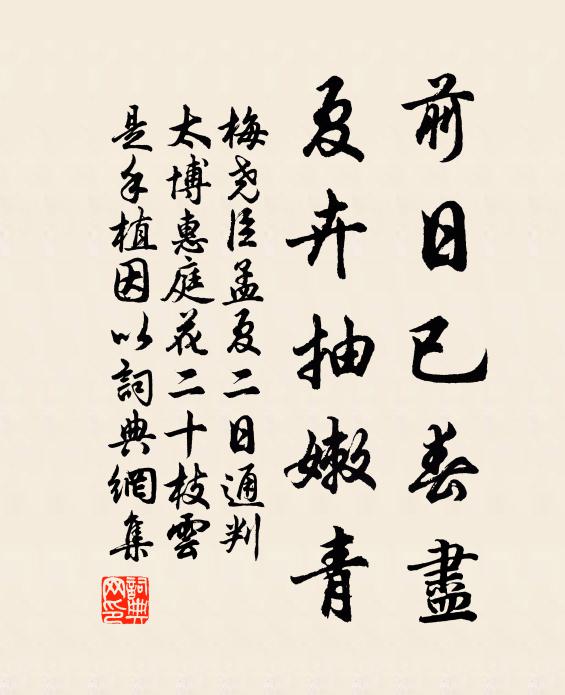 前日已春盡
夏卉抽嫩青
梅尧臣孟夏二日通判
太博惠庭花二十枝雲
是手植因以詞典網集
詞典
网印